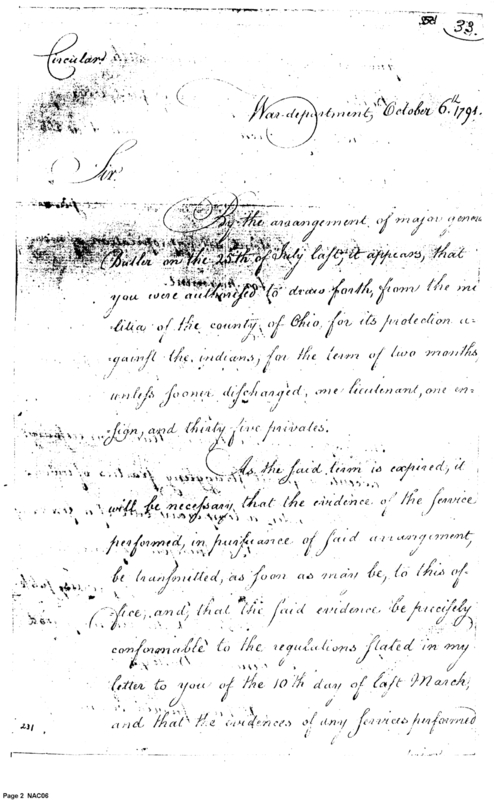 33.
Circular.
War-department, October 6th 1791.
Sir
By the arrangement of major general
Butler on the 25th of July last, it appears, that
you were authorised to draw forth, from the mi
litia of the county of Ohio, for its protection a-
gainst the indians, for the term of two months,
unless sooner discharged, one lieutenant, one en-
sign, and thirty five privates.
As the said term is expired, it
will be necessary that the evidence of the service
performed, in pursuance of said arrangement,
be transmitted, as soon as may be, to this of-
fice, and, that the said evidence be precisely
conformable to the regulations stated in my
letter to you of the 10th day of last March,
and that the evidences of any services performed
231
Page 2 NAC06